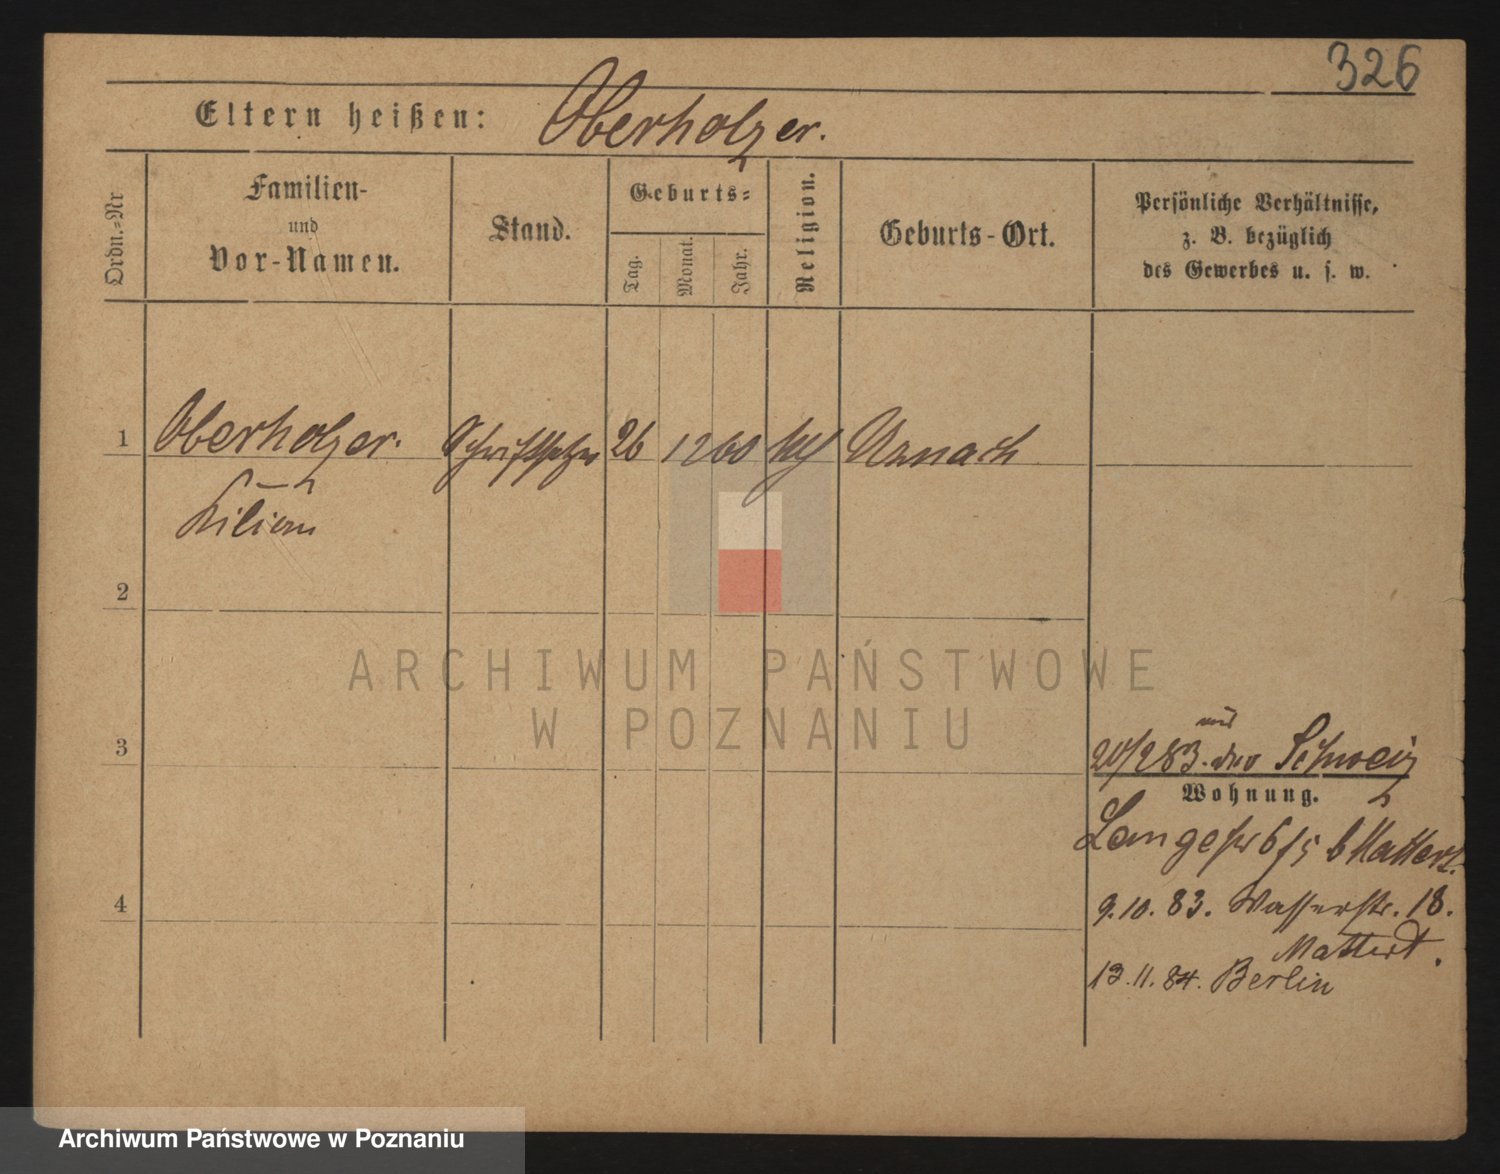 326
Eltern heißen: Oberholzer.
Ordn.-Nr
Familien-
und
Vor-Namen.
Stand.
Geburts-
Tag.
Monat.
Jahr.
Religion.
Geburts-Ort.
Persönliche Verhältnisse,
z. B. bezüglich
des Gewerbes u. s. w.
1 Oberholzer. Schriftsetzer 26 12 60 Uznach
Kilian
2
ARCHIWUM PAŃSTWOWE
W POZNANIU
aus
3 20/2 83. der Schweiz
Wohnung.
Langestr 6/5 b Mattert.
4 9.10.83. Wasserstr. 18.
Mattert.
13.11.84. Berlin
Archiwum Państwowe w Poznaniu